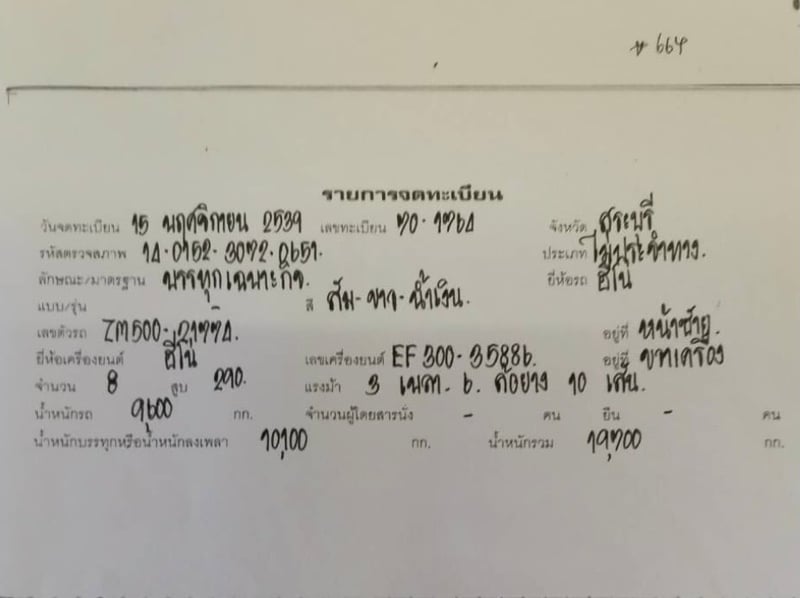 664
รายการจดทะเบียน
วันจดทะเบียน 15 พฤศจิกายน 2539 เลขทะเบียน 70-1764 จังหวัด สระบุรี
รหัสตรวจสภาพ 14-0152-3072-0651. ประเภท ไม่ประจำทาง.
ลักษณะ/มาตรฐาน บรรทุกเฉพาะกิจ. ยี่ห้อรถ ฮีโน่
แบบ/รุ่น สี ส้ม-ขาว-น้ำเงิน.
เลขตัวรถ ZM500-21774. อยู่ที่ หน้าซ้าย
ยี่ห้อเครื่องยนต์ ฮีโน่ เลขเครื่องยนต์ EF 300-35886. อยู่ที่ ขวาเครื่อง
จำนวน 8 สูบ 290. แรงม้า 3 เพลา 6 ล้อยาง 10 เส้น.
น้ำหนักรถ 9,600 กก. จำนวนผู้โดยสารนั่ง - คน ยืน - คน
น้ำหนักบรรทุกหรือน้ำหนักลงเพลา 10,100 กก. น้ำหนักรวม 19,700 กก.